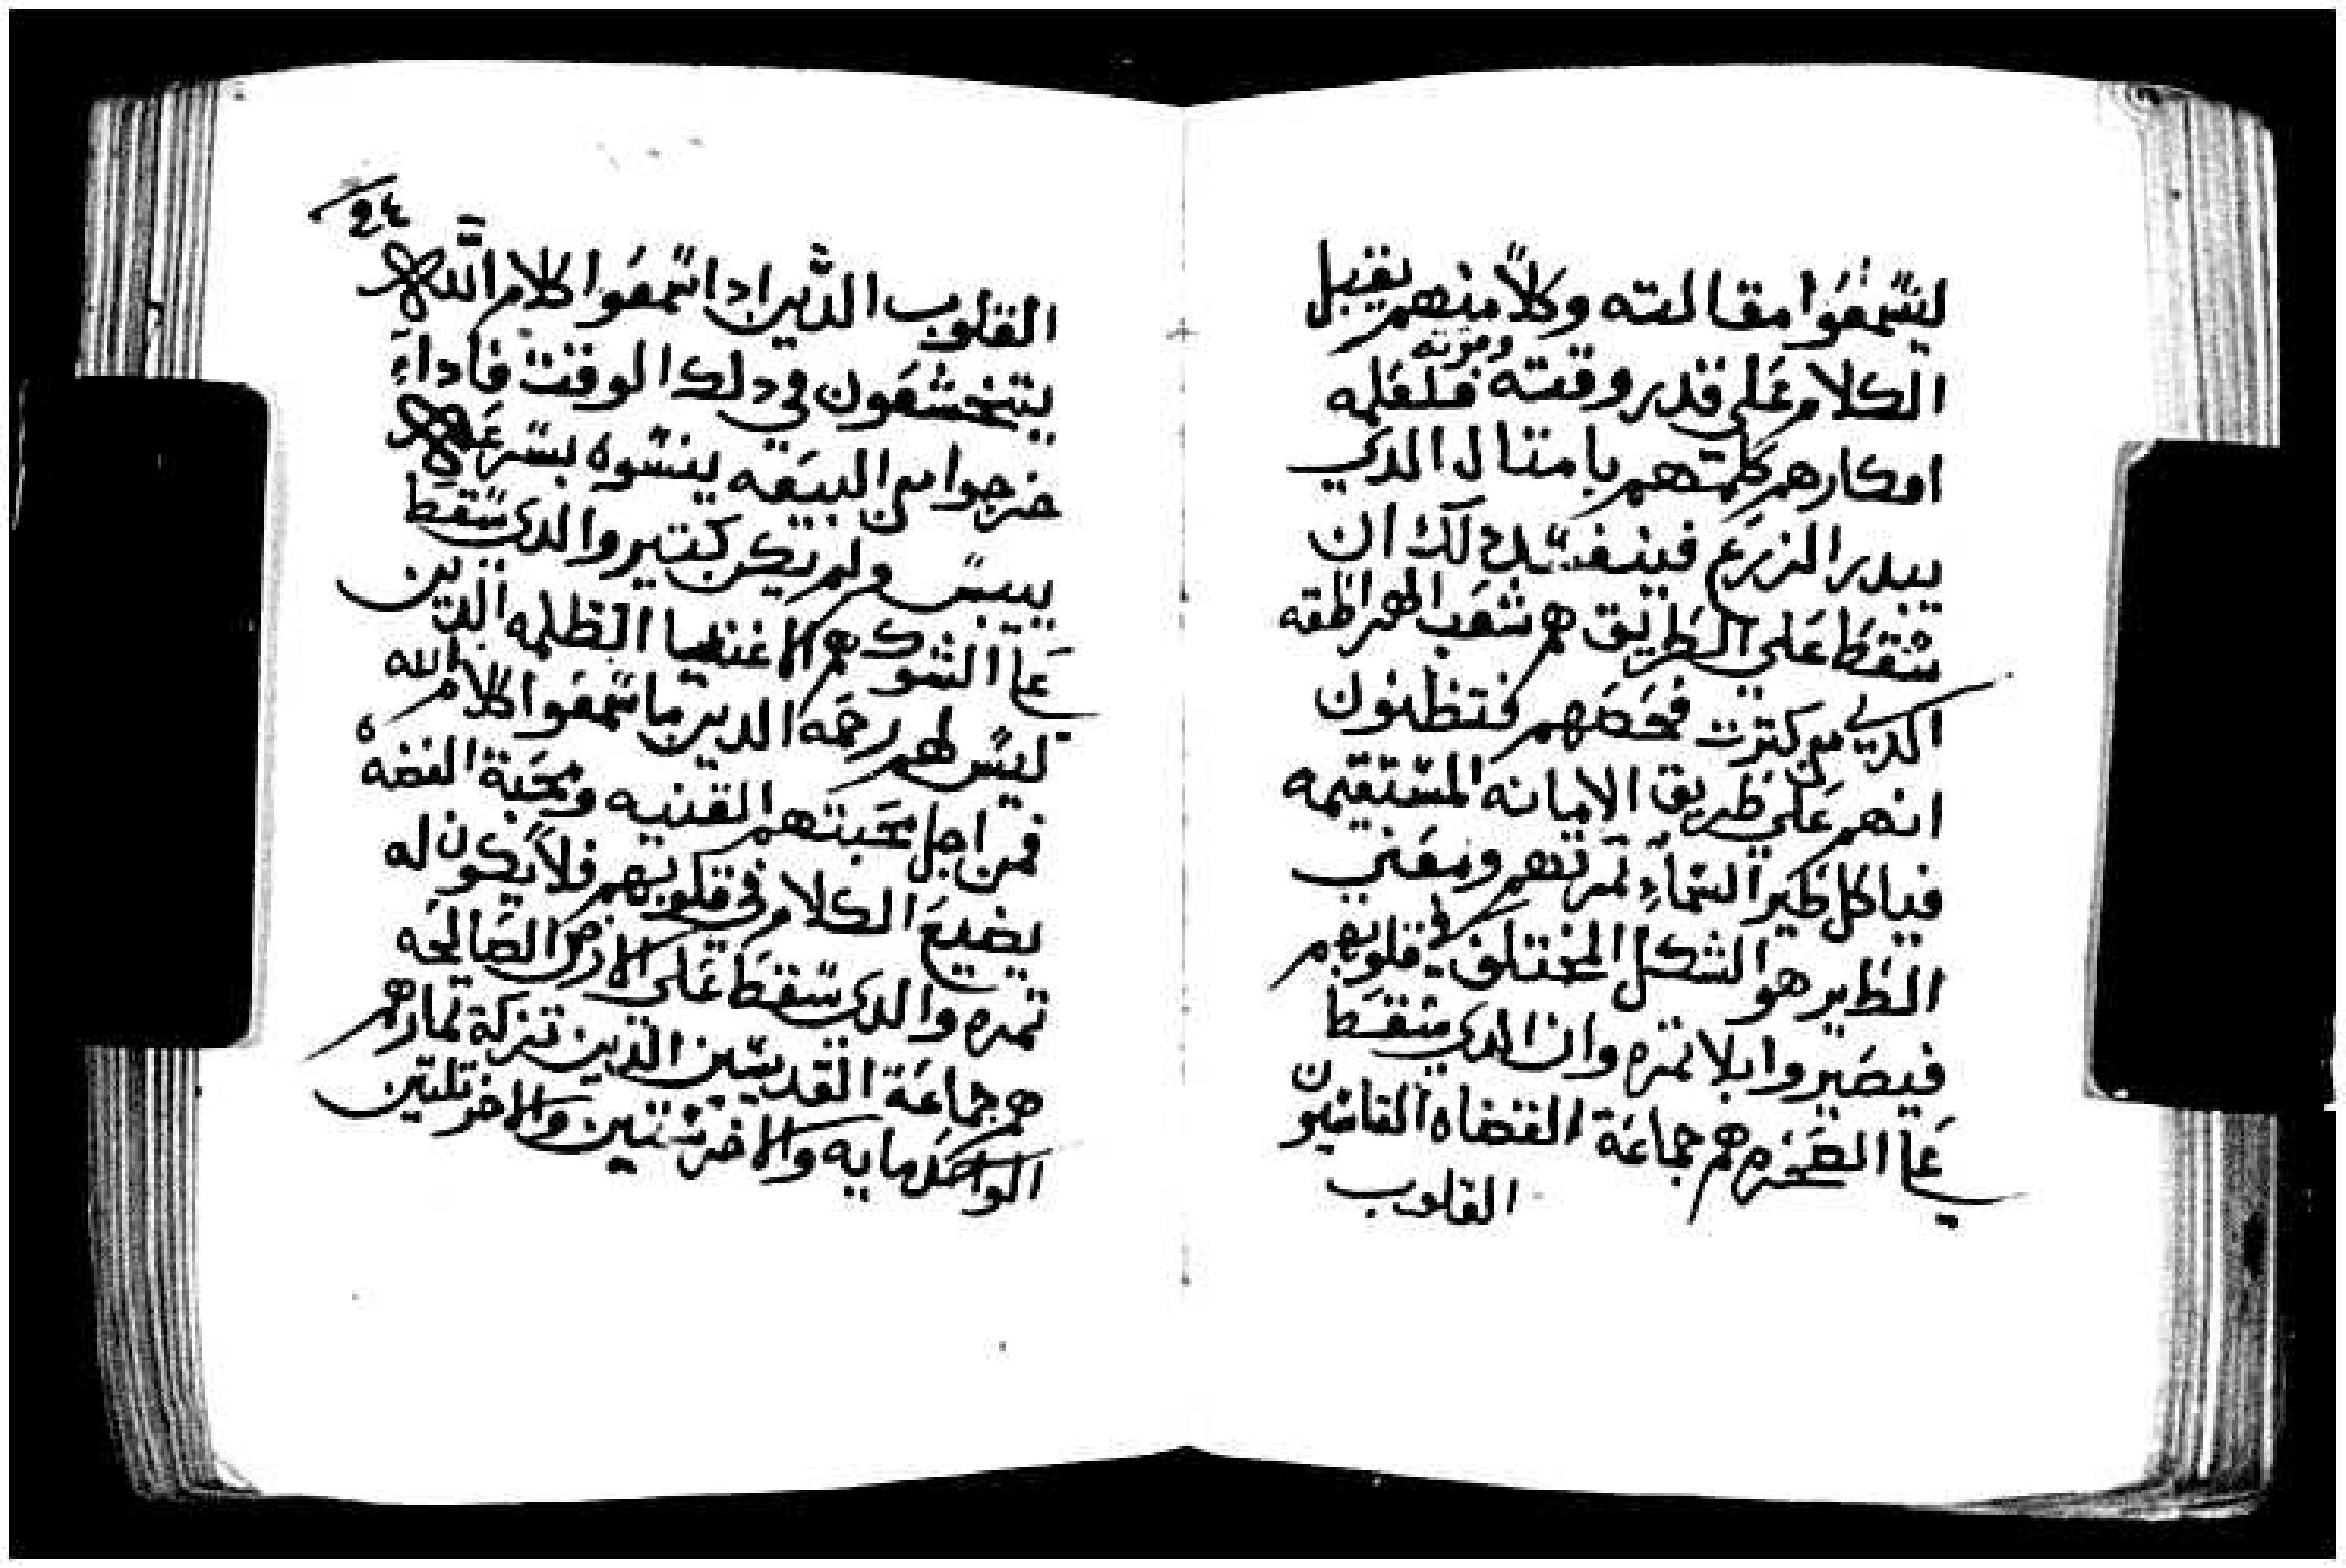 ليسمعوا مقالته وكلاً منهم يقبل
الكلام علي قدر وقته وقوته فلعلمه
افكارهم كلمتهم بامتال الدي
يبدر الزرع فينفسد لك ان
سقط علي الطريق هم شعب الهراطقه
الدي من كترت فحصهم فتظنون
انهم علي طريق الامانه المستقيمه
فياكل طير السماء تمرتهم ومعني
الطير هو الشكل المختلف في قلوبهم
فيصيروا بلا تمره وان الدي سقط
علي الصخره هم جماعة القضاه القاسيون
القلوب
24
القلوب الدين ادا سمعوا كلام الله
يتخشعون في دلك الوقت فاداء
خرجوا من البيعه ينسوه بسرعه
ييبس ولم يكن كتير والدي سقط
علي الشوك هم الاغنيا الظلمه الدين
ليس لهم رحمه الدين ما سمعوا كلام الله
فمن اجل محبتهم القنيه ومحبة الفضه
يضيع الكلام في قلوبهم فلا يكون له
تمره والدي سقط علي الارض الصالحه
هم جماعة القديسين الدين تزكة تمارهم
الواحد مايه والاخر ستين والاخر تلتين